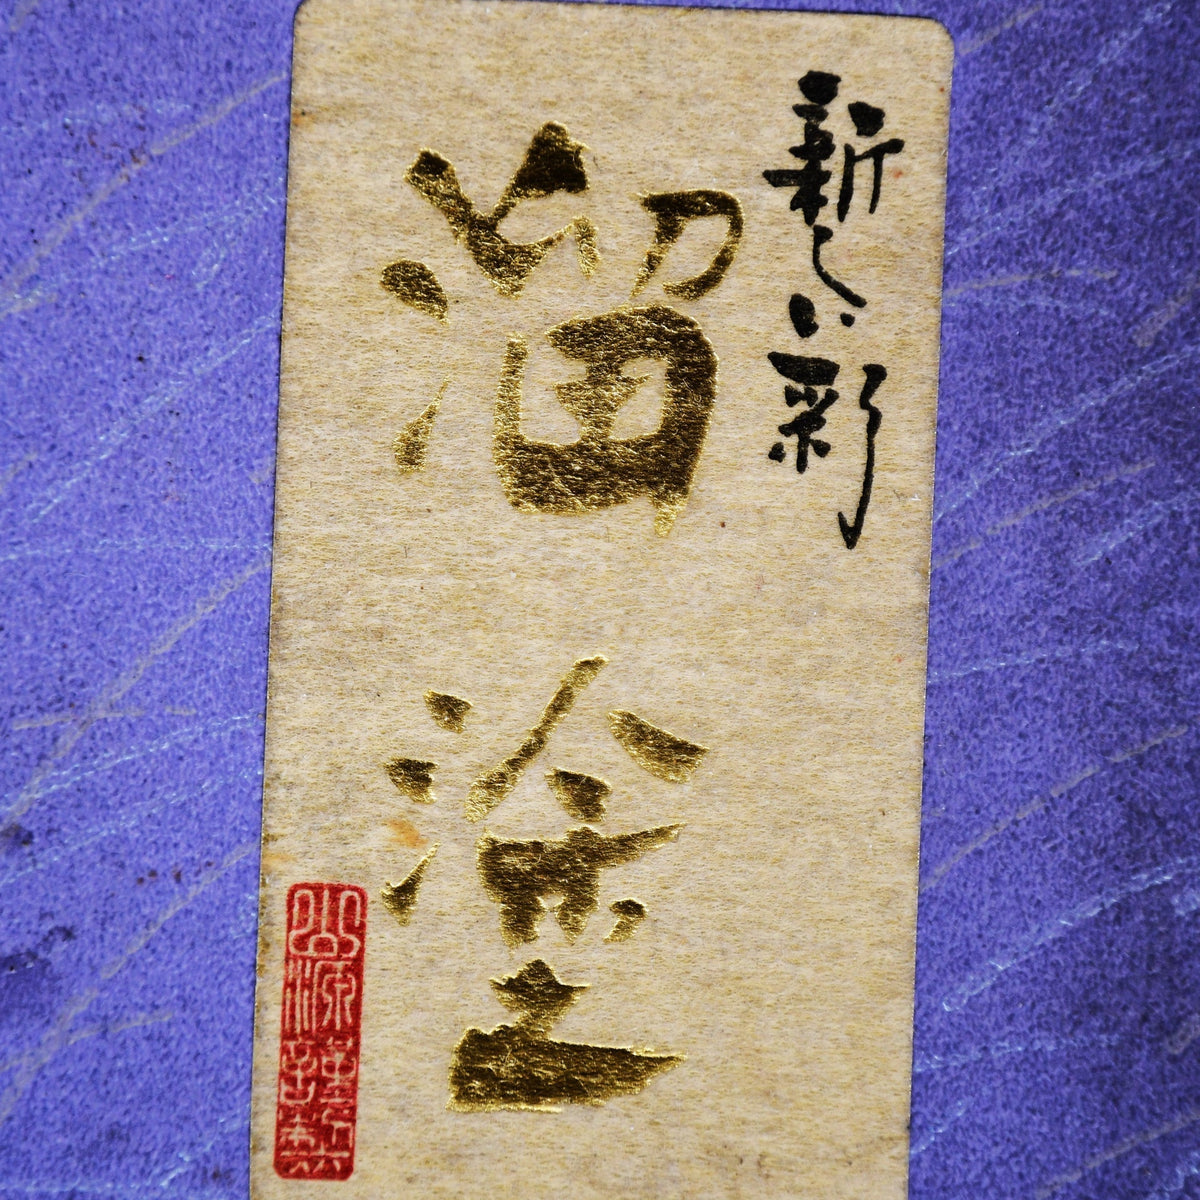 新しい彩
溜塗